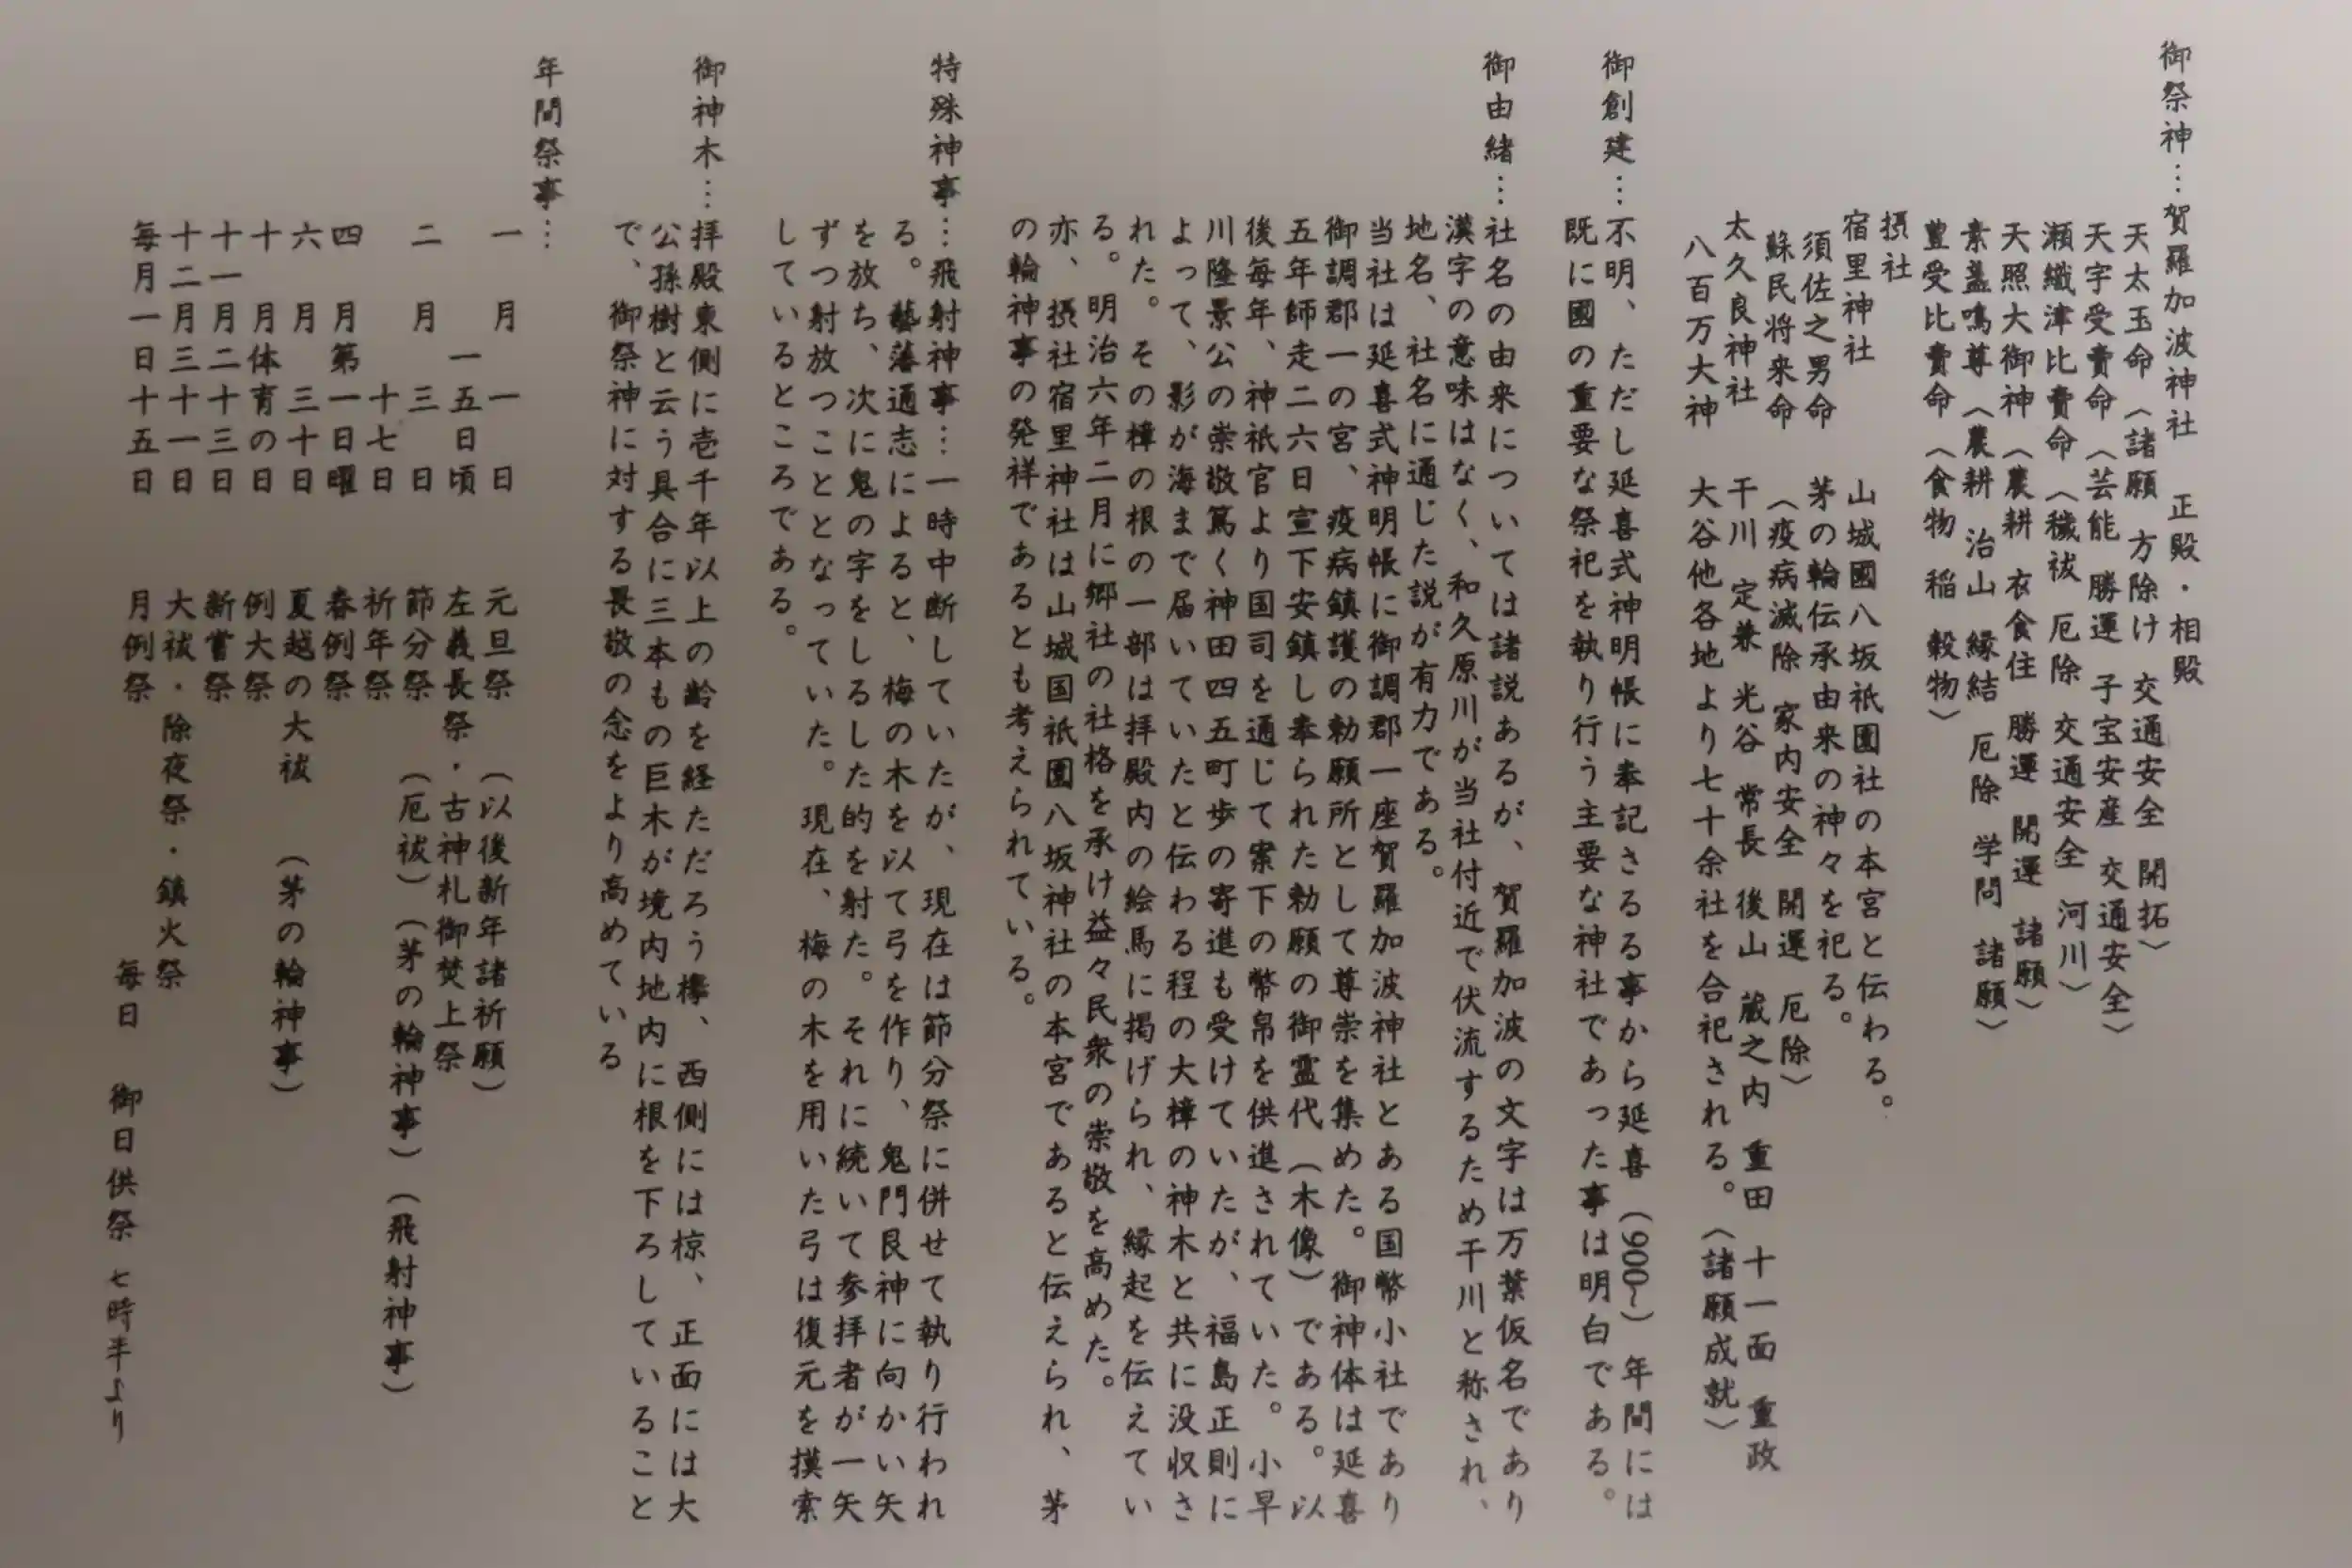 御祭神…賀羅加波神社　正殿・相殿
天太玉命（諸願 方除け 交通安全 開拓）
天宇受賣命（芸能 勝運 子宝安産 交通安全）
瀬織津比賣命（穢祓 厄除 交通安全 河川）
天照大御神（農耕 衣食住 勝運 開運 諸願）
素盞鳴尊（農耕 治山 縁結 厄除 学問 諸願）
豊受比賣命（食物 稲 穀物）
摂社
宿里神社　山城國八坂祇園社の本宮と伝わる。
須佐之男命　茅の輪伝承由来の神々を祀る。
蘇民将来命　（疫病滅除 家内安全 開運 厄除）
太久良神社　干川 定兼 光谷 常長 後山 蔵之内 重田 十一面 重政
八百万大神　大谷他各地より七十余社を合祀される。（諸願成就）
御創建…不明、ただし延喜式神明帳に奉記さるる事から延喜（900~）年間には
既に國の重要な祭祀を執り行う主要な神社であった事は明白である。
御由緒…社名の由来については諸説あるが、賀羅加波の文字は万葉仮名であり
漢字の意味はなく、和久原川が当社付近で伏流するため干川と称され、
地名、社名に通じた説が有力である。
当社は延喜式神明帳に御調郡一座賀羅加波神社とある国幣小社であり
御調郡一の宮、疫病鎮護の勅願所として尊崇を集めた。御神体は延喜
五年師走二六日宣下安鎮し奉られた勅願の御霊代（木像）である。以
後毎年、神祇官より国司を通じて案下の幣帛を供進されていた。小早
川隆景公の崇敬篤く神田四五町歩の寄進も受けていたが、福島正則に
よって、影が海まで届いていたと伝わる程の大樟の神木と共に没収さ
れた。その樟の根の一部は拝殿内の絵馬に掲げられ、縁起を伝えてい
る。明治六年二月に郷社の社格を承け益々民衆の崇敬を高めた。
亦、摂社宿里神社は山城国祇園八坂神社の本宮であると伝えられ、茅
の輪神事の発祥であるとも考えられている。
特殊神事…飛射神事…一時中断していたが、現在は節分祭に併せて執り行われ
る。藝藩通志によると、梅の木を以て弓を作り、鬼門艮神に向かい矢
を放ち、次に鬼の字をしるした的を射た。それに続いて参拝者が一矢
ずつ射放つこととなっていた。現在、梅の木を用いた弓は復元を摸索
しているところである。
御神木…拝殿東側に壱千年以上の齢を経ただろう欅、西側には椋、正面には大
公孫樹と云う具合に三本もの巨木が境内地内に根を下ろしていること
で、御祭神に対する畏敬の念をより高めている
年間祭事…
一月一日　元旦祭　（以後新年諸祈願）
一五日頃　左義長祭・古神札御焚上祭
二月三日　節分祭　（厄祓）（茅の輪神事）（飛射神事）
十七日　祈年祭
四月第一日曜　春例祭
六月三十日　夏越の大祓　（茅の輪神事）
十月体育の日　例大祭
十一月二十三日　新嘗祭
十二月三十一日　大祓・除夜祭・鎮火祭
毎月一日十五日　月例祭　毎日　御日供祭 七時半より